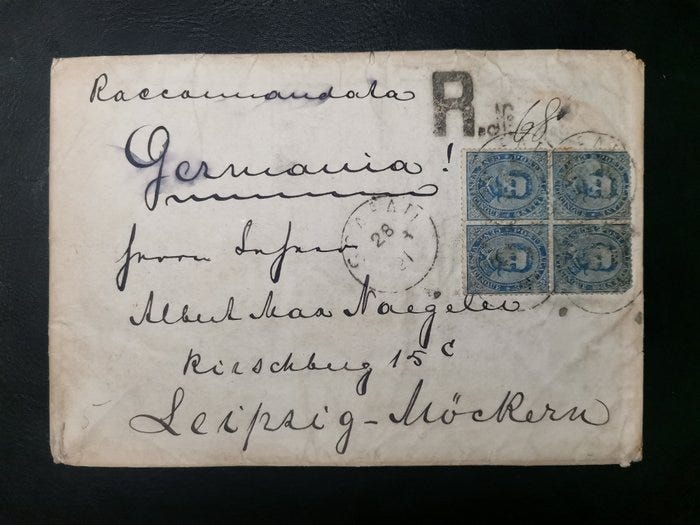 Raccomandata
R.
68
Germania!
Herrn Lehrer
28
Albert Max Naegeler
Kirschberg 15 c
Leipzig-Möckern